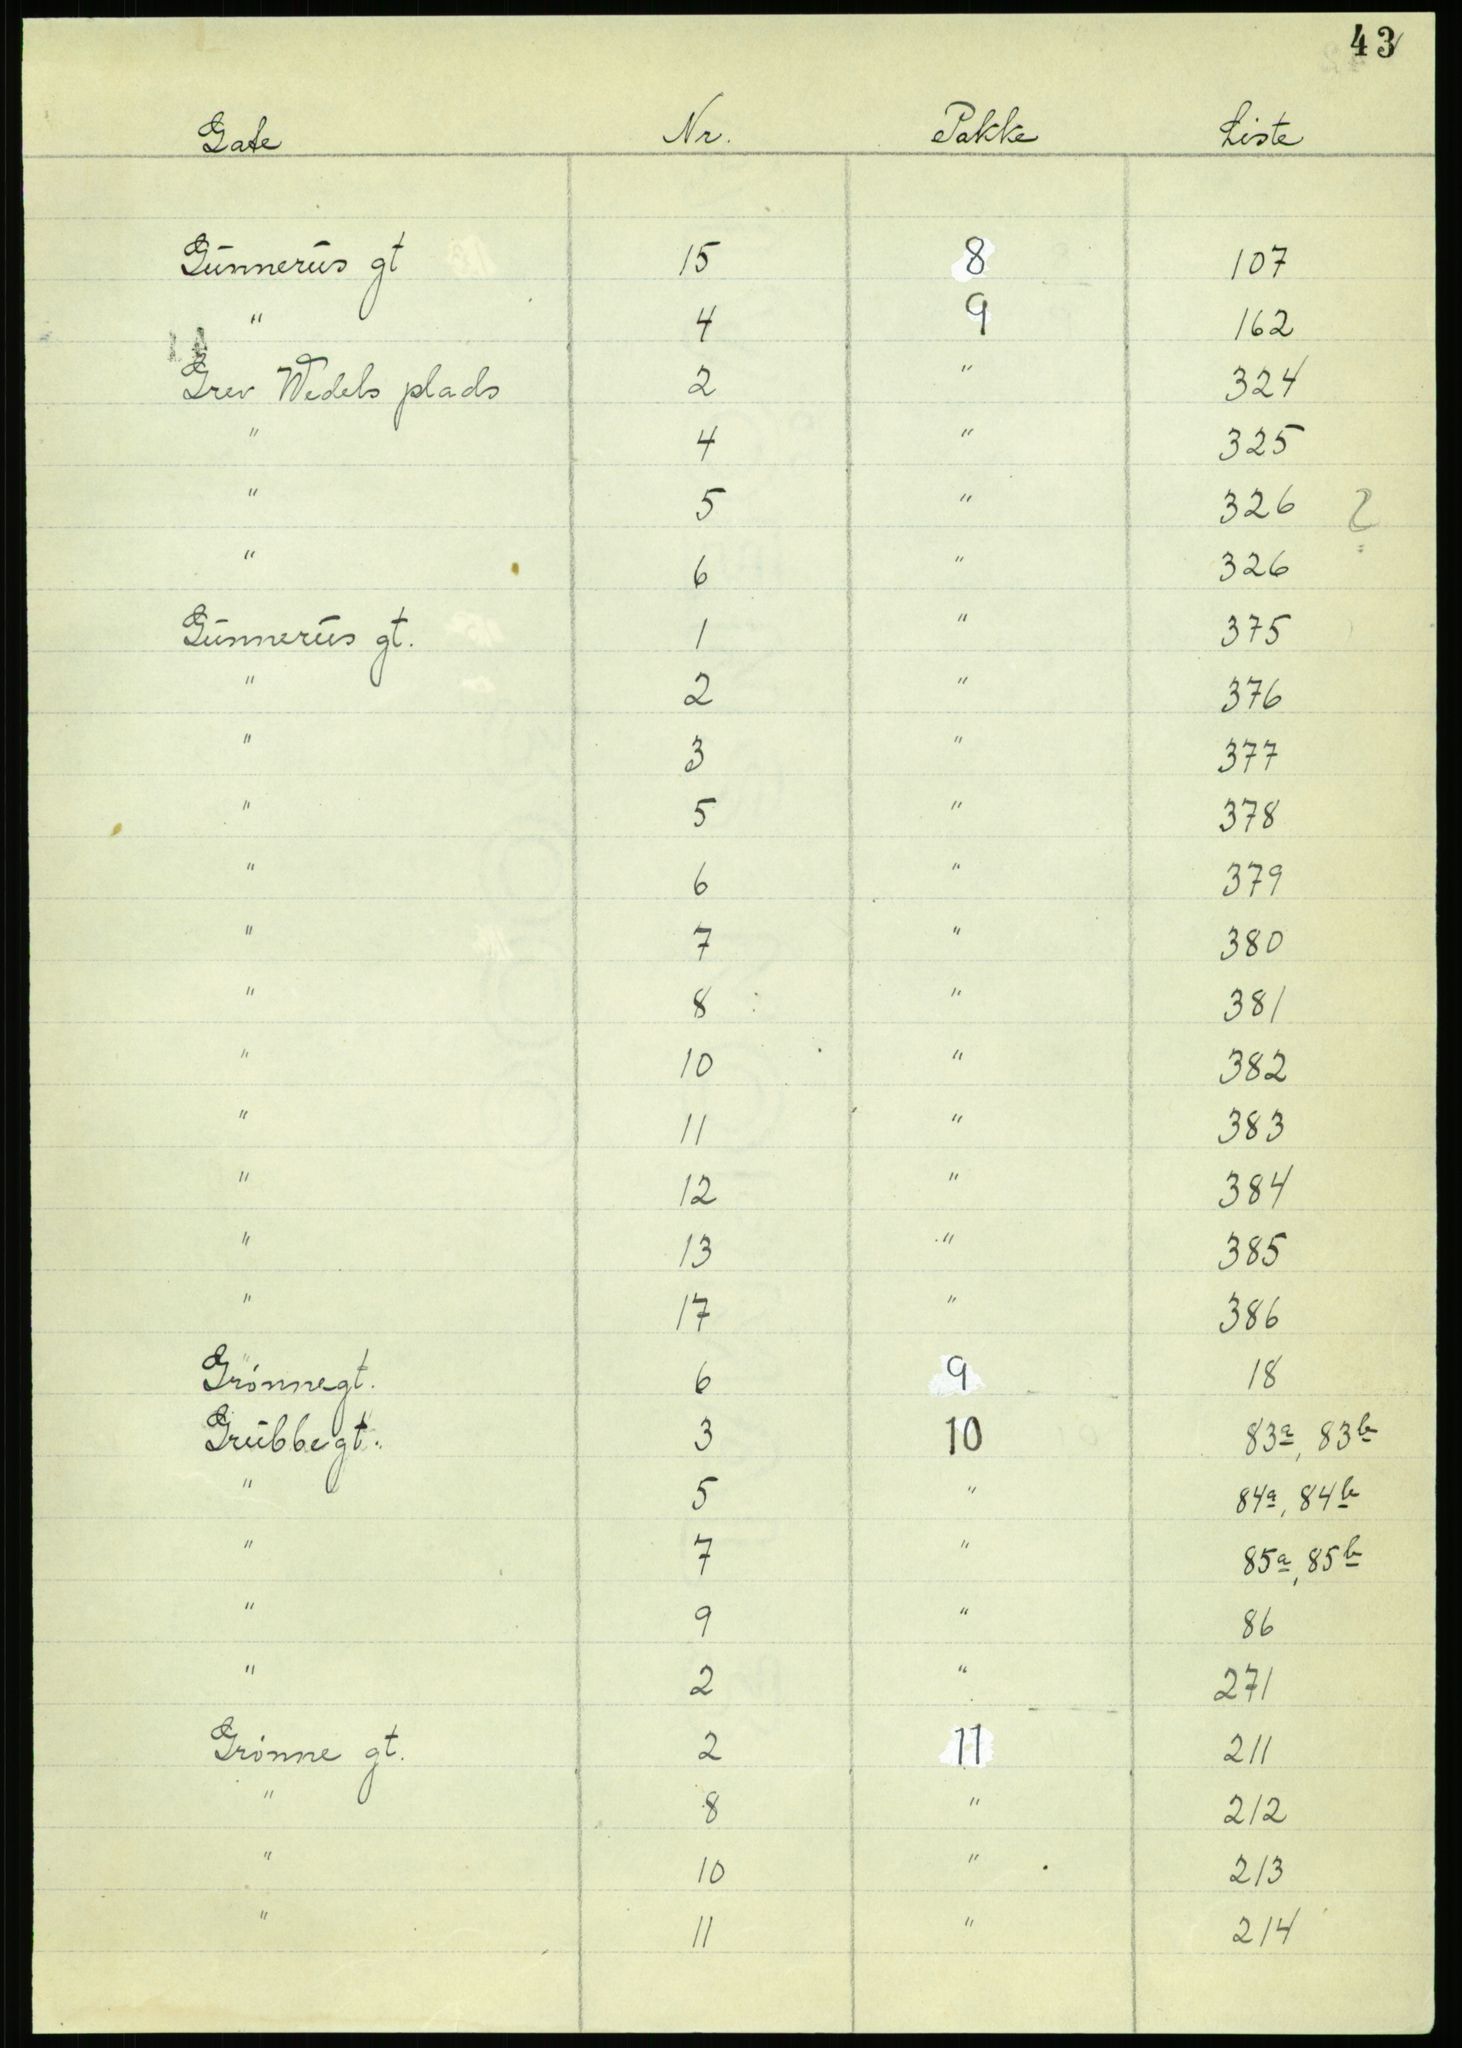 43
Gate Nr. Pakke Liste
Gunnerus gt 15 8 107
" 4 9 162
Grev Wedels plads 2 " 324
" 4 " 325
" 5 " 326 ?
" 6 " 326
Gunnerus gt. 1 " 375
" 2 " 376
" 3 " 377
" 5 " 378
" 6 " 379
" 7 " 380
" 8 " 381
" 10 " 382
" 11 " 383
" 12 " 384
" 13 " 385
" 17 " 386
Grønnegt. 6 9 18
Grubbegt. 3 10 83a, 83b
" 5 " 84a, 84b
" 7 " 85a, 85b
" 9 " 86
" 2 " 271
Grønne gt. 2 11 211
" 8 " 212
" 10 " 213
" 11 " 214